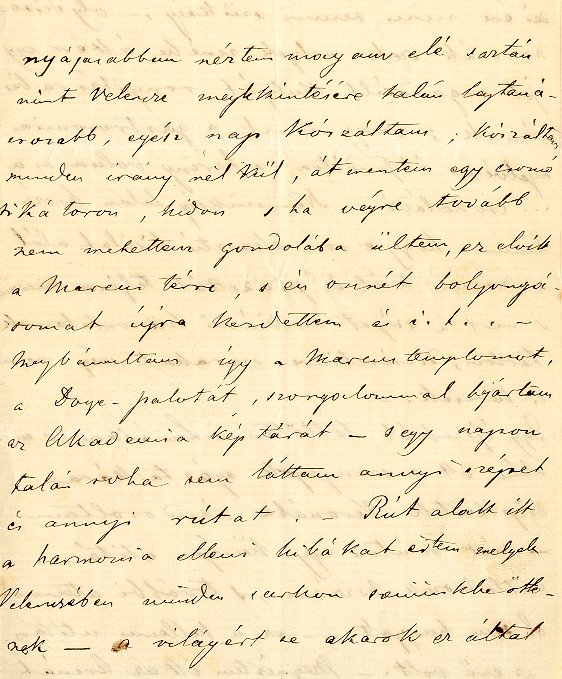 nyájasabban néztem magam elé s aztán
mint Velencze megtekintésére talán legtaná-
csosabb, egész nap kószáltam; kószáltam
minden irány nélkül, átmentem egy csomó
sikátoron, hidon s ha végre tovább
nem mehettem gondolába ültem, ez elvitt
a Marcus térre, s én onnét bolyongá-
somat újra kezdettem és i. t. . –
Megbámultam így a Marcus templomot,
a Doge-palotát, szorgalommal bejártam
az Akademia képtárát – s egy napon
talán soha sem láttam annyi szépet
és annyi rútat. – Rút alatt itt
a harmonia elleni hibákat értem melyek
Velenczében minden sarkon szemünkbe ötle-
nek – a világért se akarok ez által